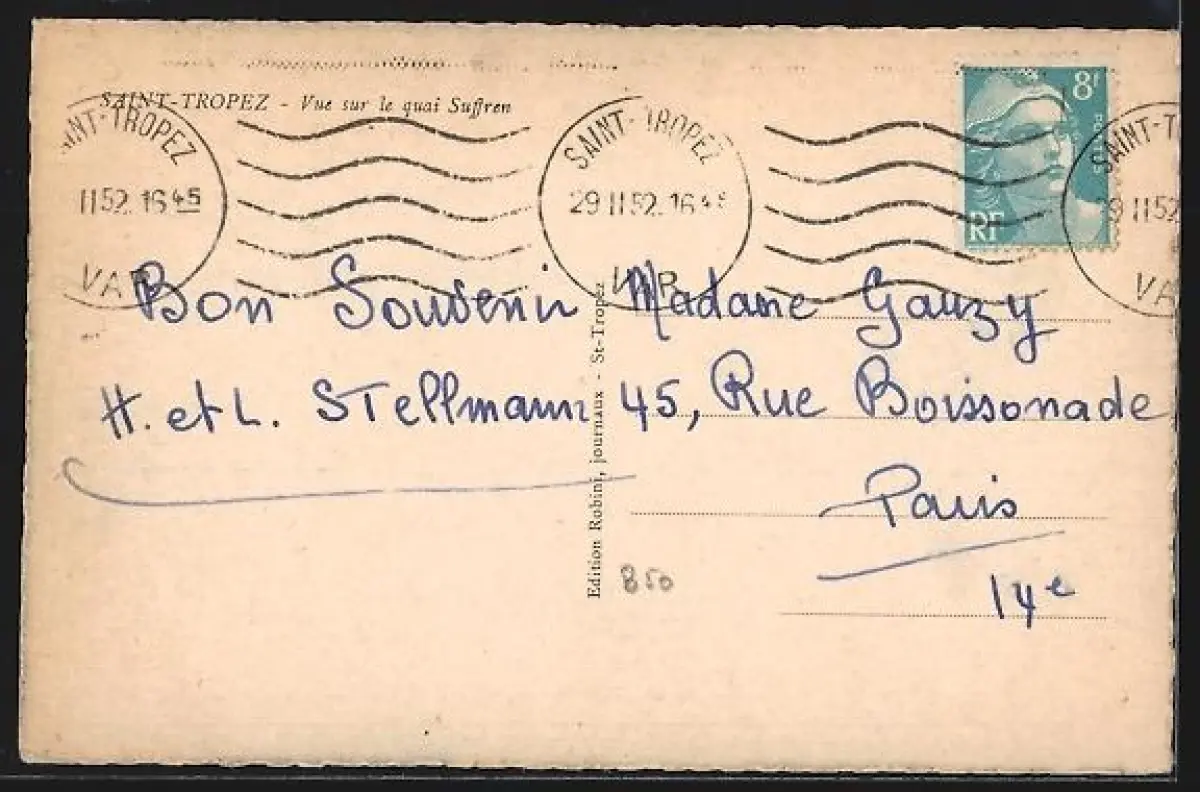 SAINT-TROPEZ - Vue sur le quai Suffren
INT-TROPEZ
II 52 16 45
VAR
SAINT-TROPEZ
29 II 52 16 45
VAR
8F
POSTES
RF
SAINT-T
9 II 52
VA
Bon Souvenir
H. et L. Stellmann
Edition Robini, journaux - St-Tropez
Madame Gauzy
45, Rue Boissonade
Paris
14e
850